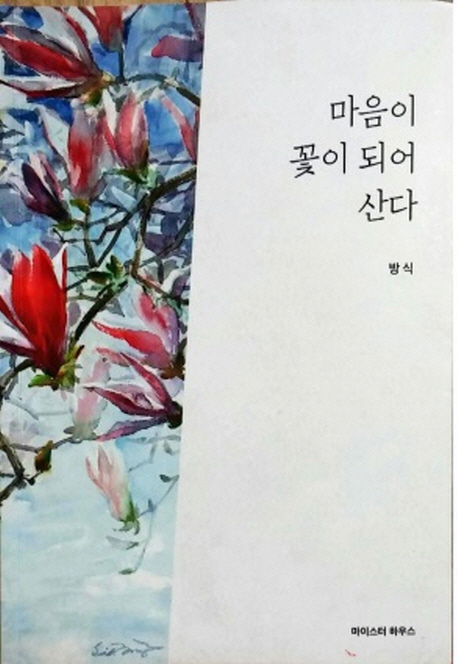 마음이
꽃이 되어
산다
방식
마이스터 하우스